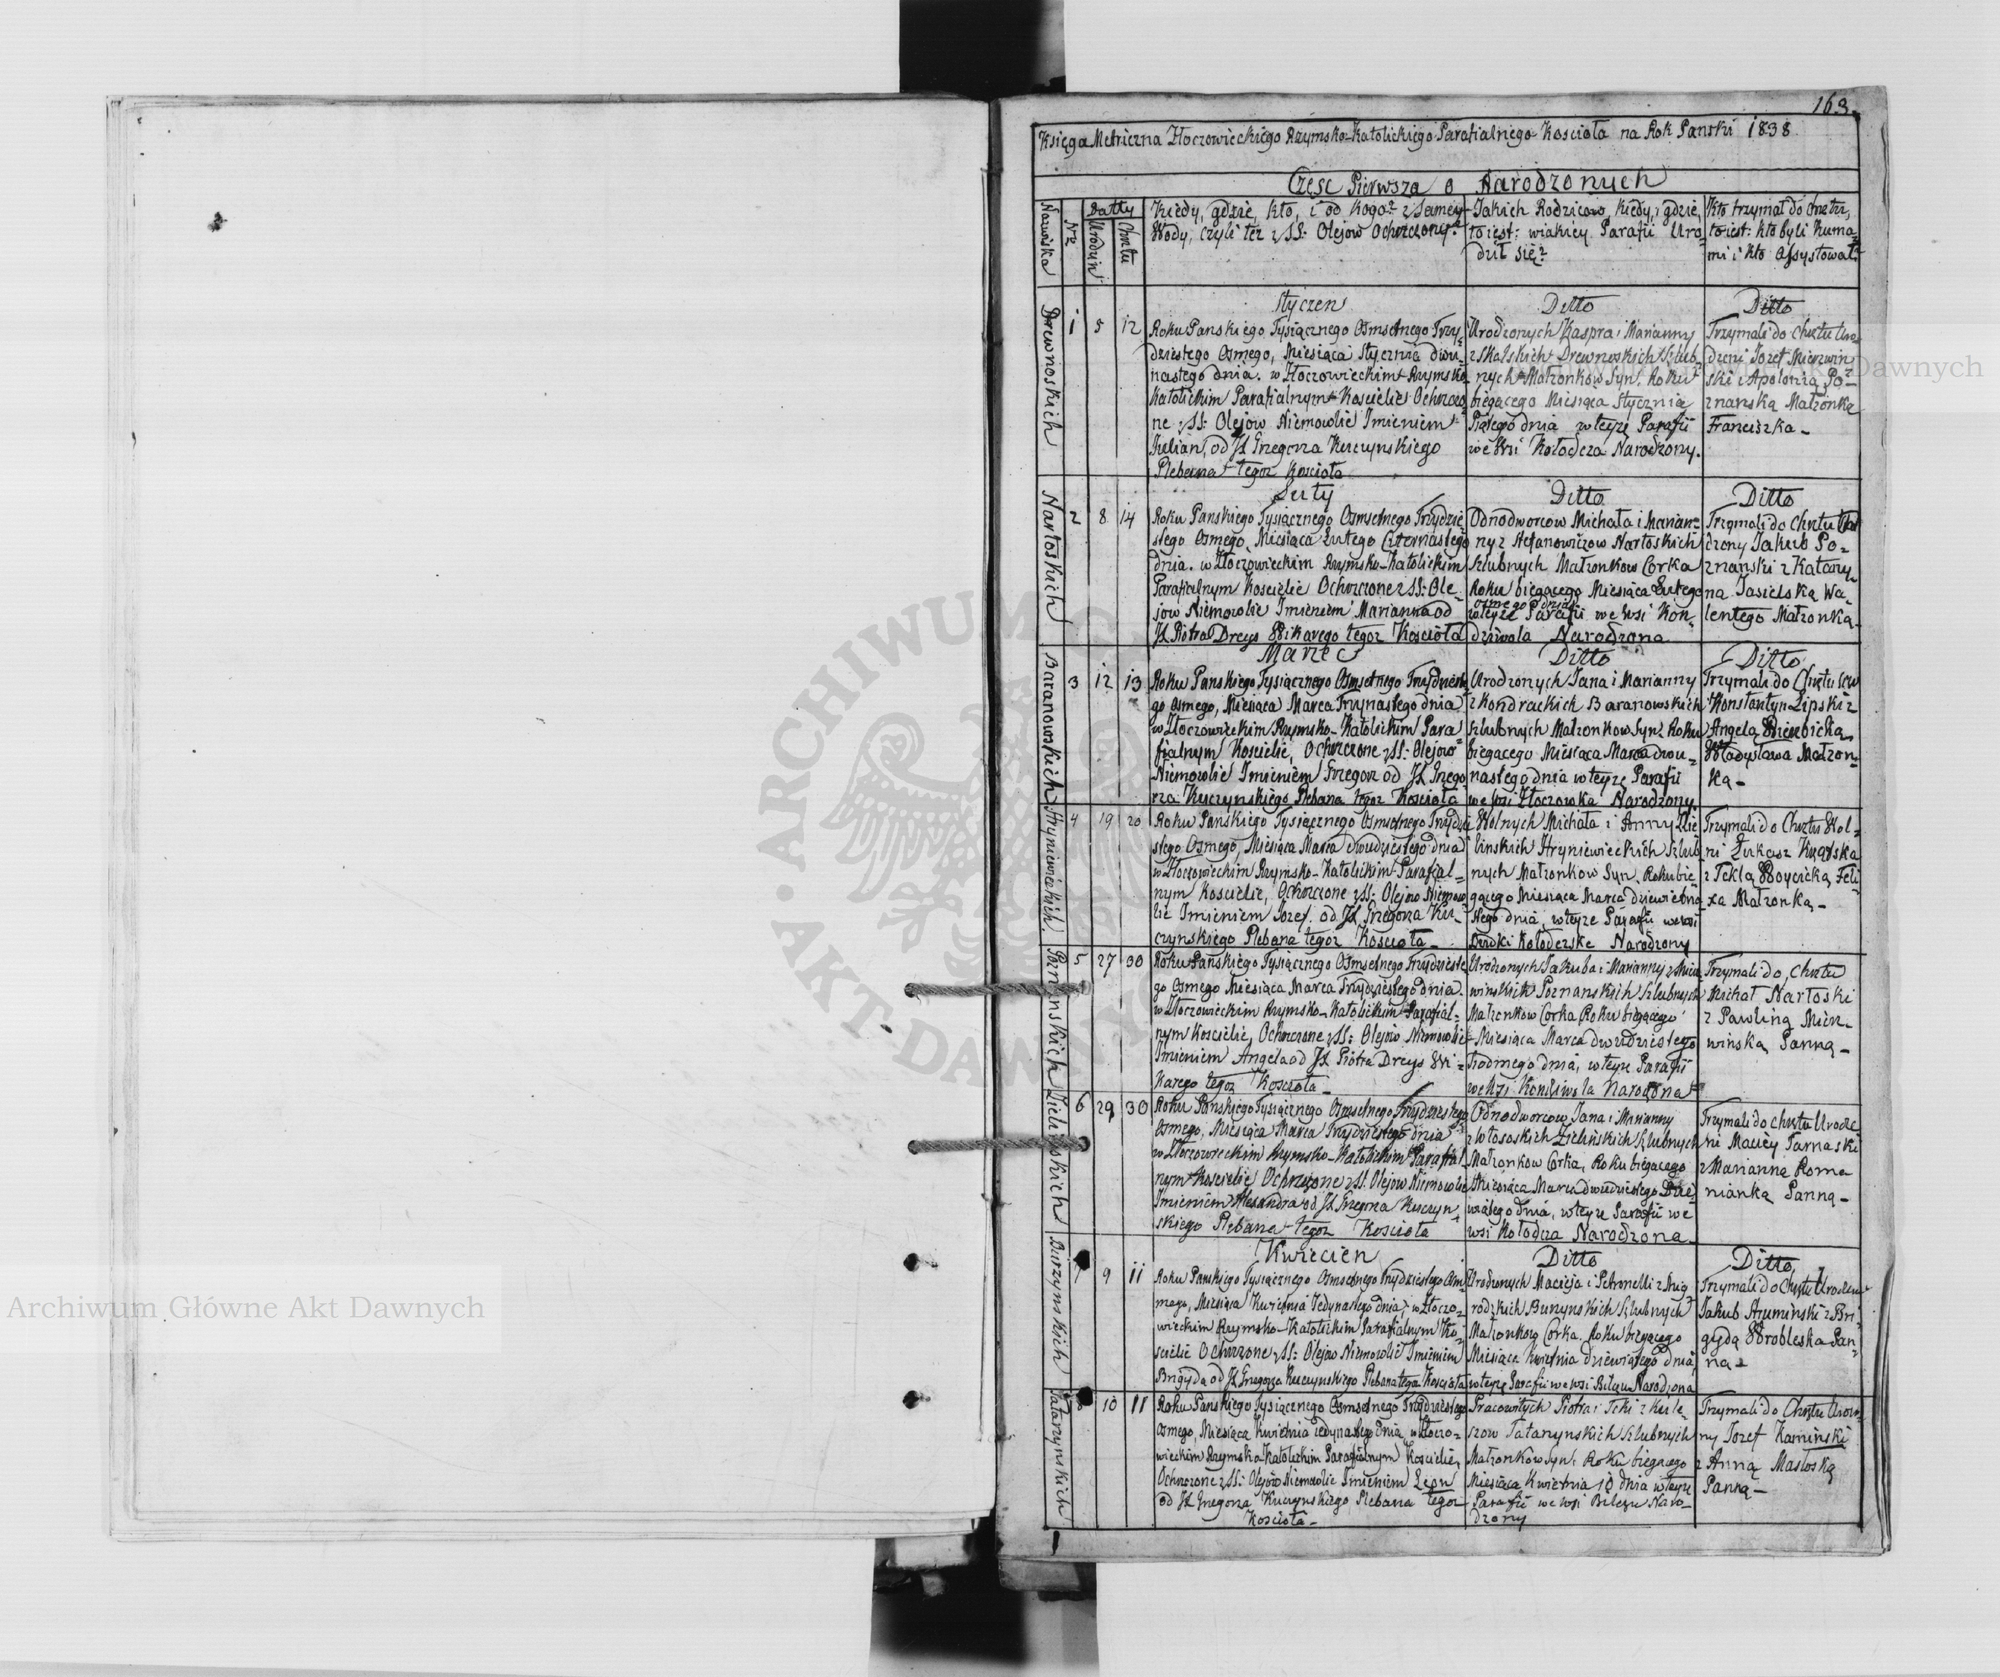 163.
Księga Metriczna Złoczowieckiégo Rzymsko-Katolickiégo Parafialnégo Koscioła na Rok Panski 1838
Częsc Pierwsza o Narodzonych
Nazwiska
Nro
Datty
Urodzin
Chrztu
Kiédy, gdzié, kto, i od kogo? z Samey
Wody, czyli téz z SS: Olejow Ochrzczony?
Jakich Rodzicow, kiedy, i gdzie,
to iest: w iakiey Parafii Uro-
dził się?
Kto trzymał do Chrztu,
to iest: kto byli Kuma-
mi i kto Assystował?
Drewnoskich
1 5 12
Styczen
Roku Panskiego Tysiącznego Osmsetnego Trzy-
dziestego Osmego, Miesiąca Stycznia dwu-
nastego dnia. w Złoczowieckim Rzymsko
Katolickim Parafialnym Koscielie Ochrzczo-
ne z SS: Olejow Niemowlie Imieniem
Julian, od JX Grzegorza Kuczynskiego
Plebana tegoz Koscioła
Ditto
Urodzonych Kaspra i Marianny
z Skalskich Drewnoskich Szlub-
nych Małzonkow Syn. Roku
biegącego Miesiąca Stycznia
Piątego dnia w teyze Parafii
we Wsi Kołodcza Narodzony.
Ditto
Trzymali do Chrztu Uro-
dzeni Jozef Mierzwin-
ski z Apolonią Po-
znanską Małzonką
Franciszka-
Nartoskich
2 8 14
Luty
Roku Panskiego Tysiącznego Osmsetnego Trzydzie-
stego Osmego, Miesiąca Lutego Czternastego
dnia. w Złoczowieckim Rzymsko-Katolickim
Parafialnym Koscielie Ochrzczone z SS: Ole-
jow Niemowlie Imieniem Marianna od
JX Piotra Dreys Wikarego tegoz Koscioła
Ditto
Odnodworcow Michała i Marian-
ny z Stefanowiczow Nartoskich
Szlubnych Małzonkow Corka
Roku biegącego Miesiąca Lutego
osmego dnia
w teyze Parafii we Wsi Kon-
dziwola Narodzona
Ditto
Trzymali do Chrztu Uro-
dzony Jakub Po-
znanski z Katarzy-
na Jasielską Wa-
lentego Małzonką-
Baranowskich
3 12 13
Marzec
Roku Panskiego Tysiącznego Osmsetnego Trzydzieste-
go Osmego, Miesiąca Marca Trzynastego dnia
w Złoczowieckim Rzymsko-Katolickim Para-
fialnym Koscielie, Ochrzczone z SS: Olejow
Niemowlie Imieniem Grzegorz od JX Grzego-
rza Kuczynskiego Plebana tegoz Koscioła
Ditto
Urodzonych Jana i Marianny
z Kondrackich Baranowskich
Szlubnych Małzonkow Syn. Roku
biegącego Miesiąca Marca dwu-
nastego dnia w teyze Parafii
we Wsi Złoczowka Narodzony.
Ditto
Trzymali do Chrztu
Konstantyn Lipski z
Angelą Wierbicką
Władysława Małzon-
ką-
Hryniewieckich.
4 19 20
Roku Panskiego Tysiącznego Osmsetnego Trzydzie-
stego Osmego, Miesiąca Marca dwudziestego dnia
w Złoczowieckim Rzymsko-Katolickim Parafial-
nym Koscielie, Ochrzczone z SS: Olejow Niemow-
lie Imieniem Jozef. od JX Grzegorza Ku-
czynskiego Plebana tegoz Koscioła-
Wolnych Michała i Anny Zie-
linskich Hryniewieckich Szlub-
nych Małzonkow Syn. Roku bie-
gącego Miesiąca Marca dziewietna-
stego dnia, w teyze Parafii we wsi
Budki Kołodezske Narodzony
Trzymali do Chrztu Wol-
ni Łukasz
z Teklą Woycicką Feli-
xa Małzonką-
Poznanskich
5 27 30
Roku Panskiego Tysiącznego Osmsetnego Trzydzieste-
go Osmego Miesiąca Marca Trzydziestego dnia.
w Złoczowieckim Rzymsko-Katolickim Parafial-
nym Koscielie, Ochrzczone z SS: Olejow Niemowlie
Imieniem Angela od JX Piotra Dreys Wi-
karego tegoz Koscioła-
Urodzonych Jakuba i Marianny z Mierz-
winskich Poznanskich Szlubnych
Małzonkow Corka Roku biegącego
Miesiąca Marca dwudziestego
siodmego dnia, w teyze Parafii
we Wsi Kondziwola Narodzona
Trzymali do Chrztu
Michał Nartoski
z Pawliną Mierz-
winską Panną-
Zielinskich
6 29 30
Roku Panskiego Tysiącznego Osmsetnego Trzydziestego
Osmego, Miesiąca Marca Trzydziestego dnia
w Złoczowieckim Rzymsko-Katolickim Parafial-
nym Koscielie Ochrzczone z SS. Olejow Niemowlie
Imieniem Alexandra od JX Grzegorza Kuczyn-
skiego Plebana tegoz Koscioła
Odnodworcow Jana i Marianny
z Włososkich Zielinskich Szlubnych
Małzonkow Corka, Roku biegącego
Miesiąca Marca dwudziestego Dzie-
wiątego dnia, w teyze Parafii we
wsi Kołodcza Narodzona
Trzymali do chrztu Urodze-
ni Maciey Tarnaski
z Marianną Roma-
nianką Panną-
Burzynskich
7 9 11
Kwiecien
Roku Panskiego Tysiącznego Osmsetnego Trzydziestego Os-
mego, Miesiąca Kwietnia Jedynastego dnia, w Złoczo-
wieckim Rzymsko-Katolickim Parafialnym Ko-
scielie Ochrzczone z SS: Olejow Niemowlie Imieniem
Brigyda od JX Grzegorza Kuczynskiego Plebana tegoz Koscioła
Ditto
Urodzonych Macieja i Petronelli z
rodzkich Burzynskich Szlubnych
Małzonkow Corka, Roku biegącego
Miesiąca Kwietnia dziewiątego dnia,
w teyze Parafii we wsi Narodzona
Ditto
Trzymali do Chrztu Urodzeni
Jakub Struminski z Bri-
gydą Wrobleska Pan-
na-
Tatarzynskich
8 10 11
Roku Panskiego Tysiącznego Osmsetnego Trzydziestego
Osmego, Miesiąca Kwietnia jedynastego dnia, w Złoczo-
wieckim Rzymsko Katolickim Parafialnym Koscielie,
Ochrzczone z SS: Olejow Niemowlie Imieniem Leon
od JX Grzegorza Kuczynskiego, Plebana tegoz
Koscioła-
Pracowitych Piotra i Tekli z Kule-
szow Tatarzynskich Szlubnych
Małzonkow Syn. Roku biegącego
Miesiąca Kwietnia 10 dnia w teyze
Parafii we wsi Naro-
dzony
Trzymali do Chrztu
Jozef Kaminski
z Anną Masłoską
Panną-
Archiwum Główne Akt Dawnych
ARCHIWUM
AKT DAWNYCH